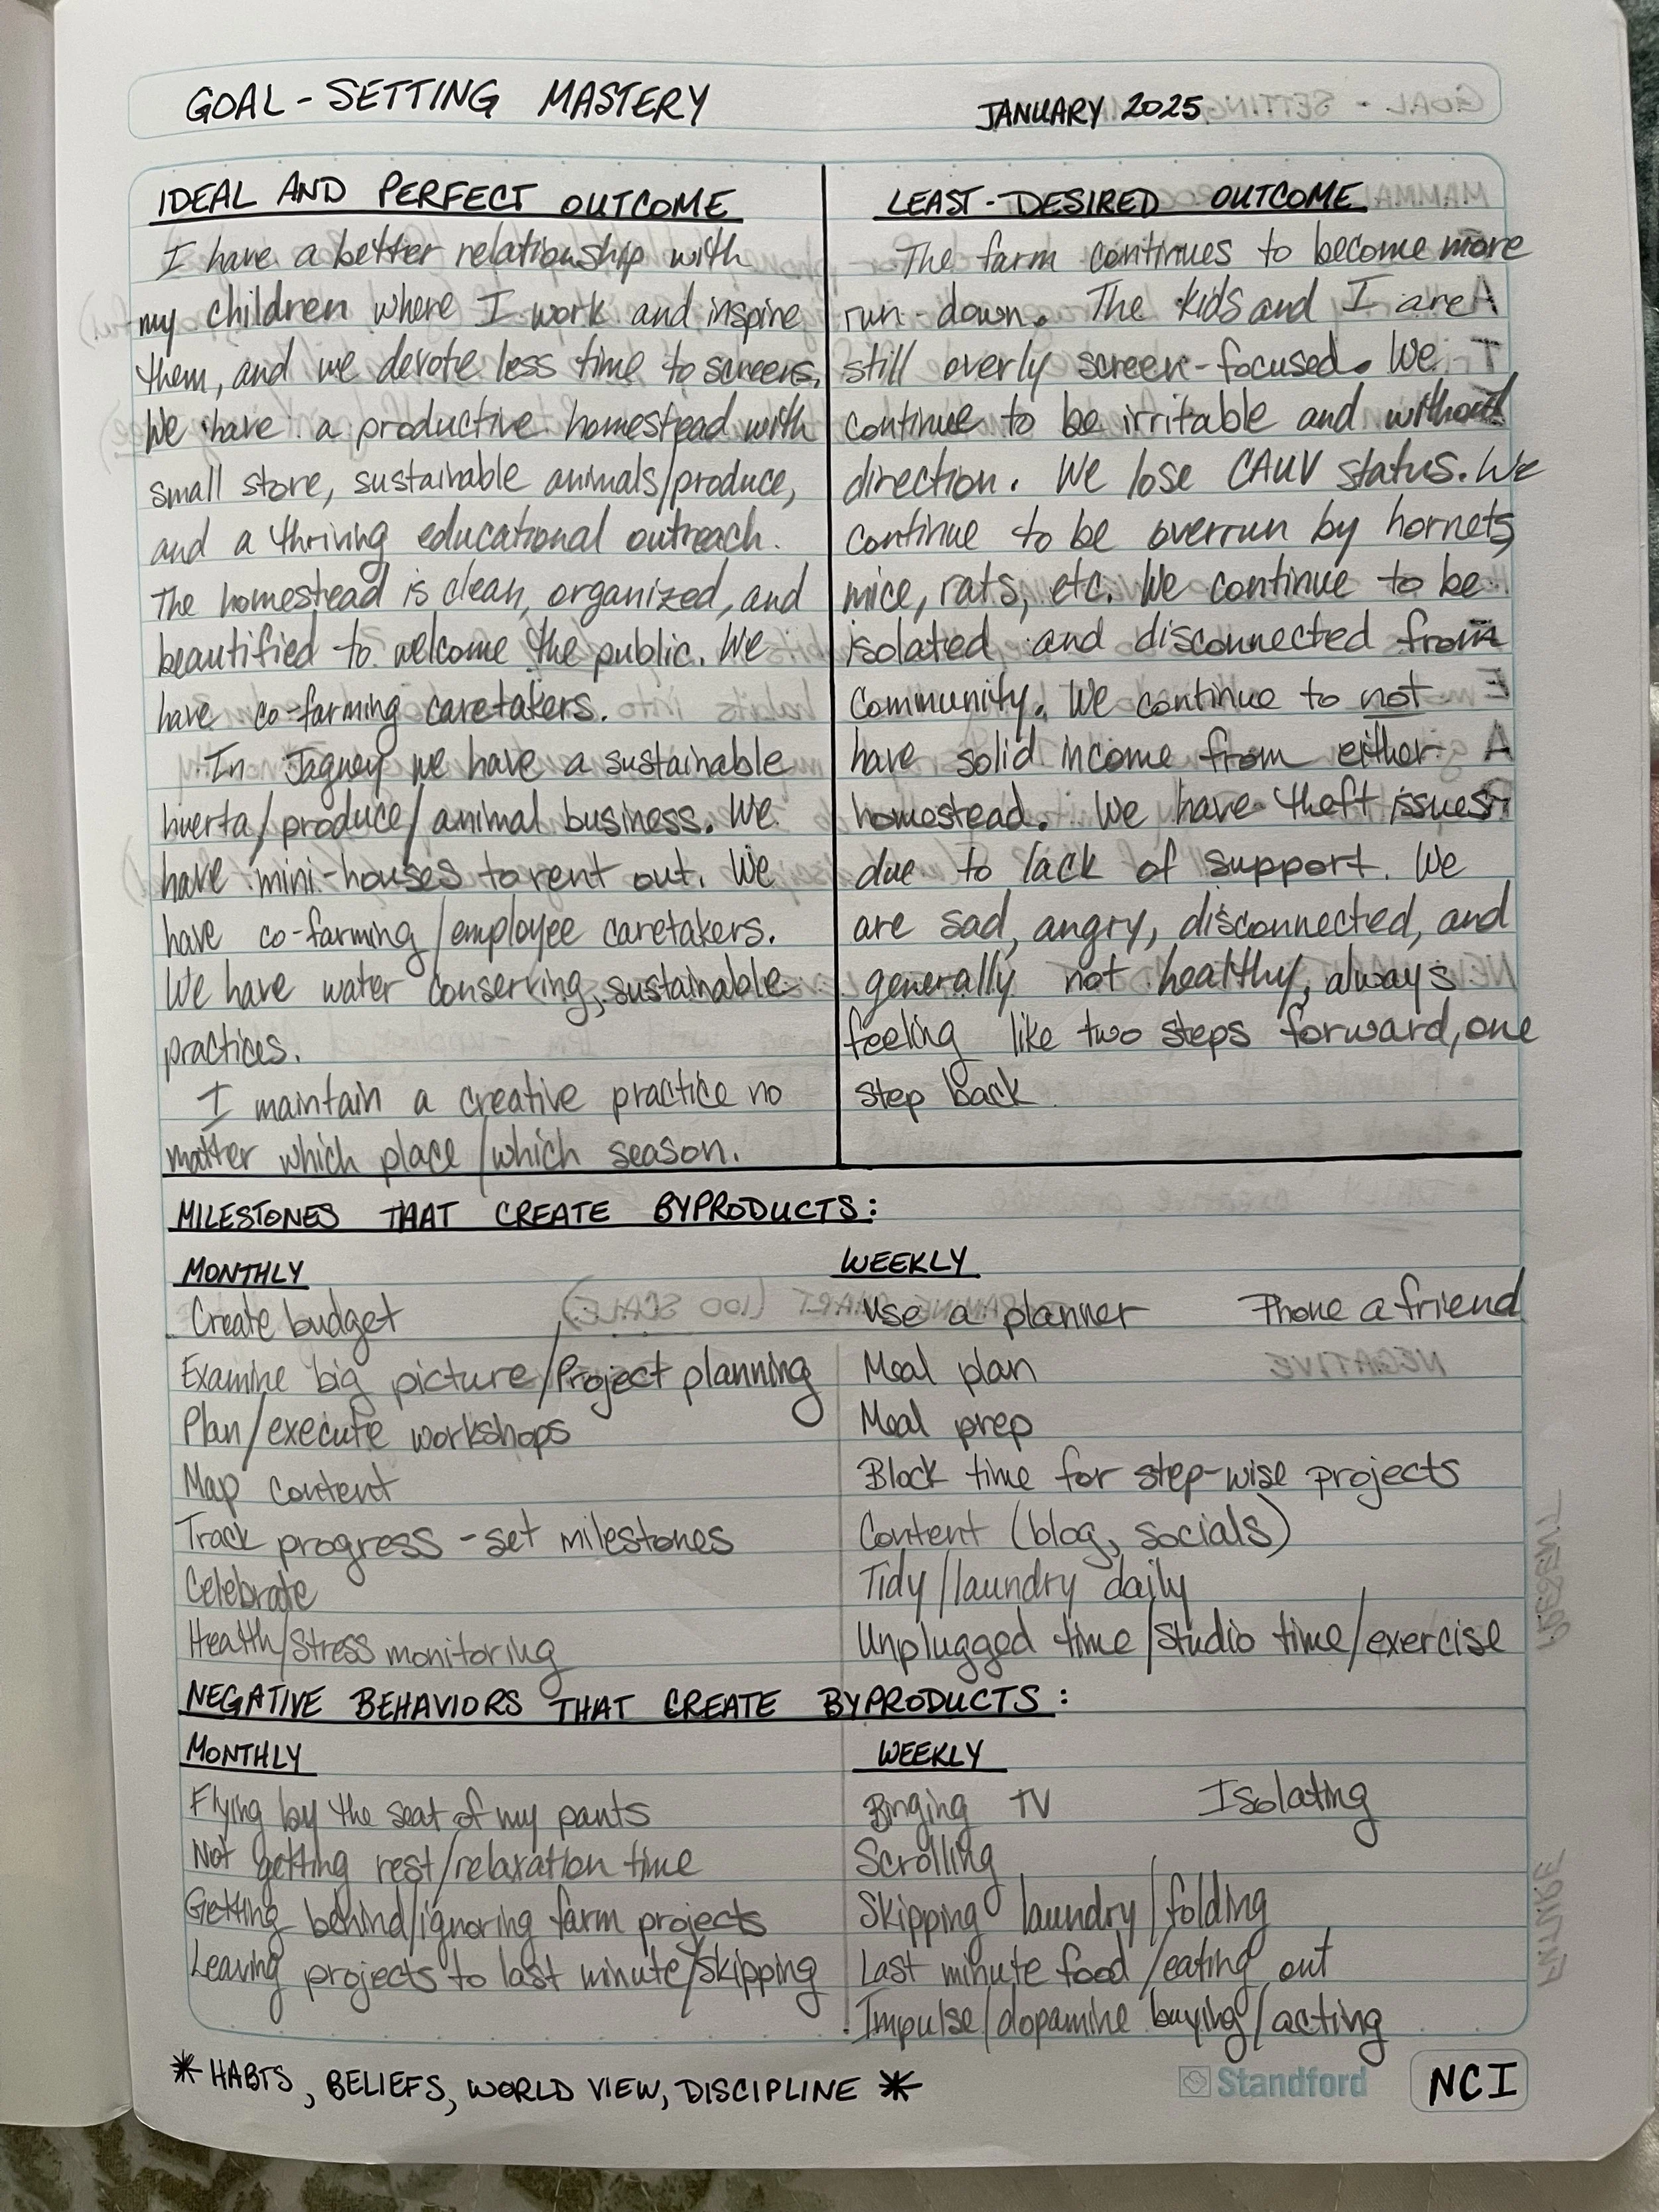 GOAL-SETTING MASTERY
JANUARY 2025
IDEAL AND PERFECT OUTCOME
I have a better relationship with
my children where I work and inspire
them, and we devote less time to screens.
We have a productive homestead with
small store, sustainable animals/produce,
and a thriving educational outreach.
The homestead is clean, organized, and
beautified to welcome the public. We
have co-farming caretakers.
In Jaguey we have a sustainable
huerta/produce/animal business. We
have mini-houses to rent out. We
have co-farming/employee caretakers.
We have water conserving, sustainable
practices.
I maintain a creative practice no
matter which place/which season.
LEAST-DESIRED OUTCOME
The farm continues to become more
run-down. The kids and I are
still overly screen-focused. We
continue to be irritable and without
direction. We lose CAUV status. We
continue to be overrun by hornets,
mice, rats, etc. We continue to be
isolated and disconnected from
community. We continue to not
have solid income from either
homestead. We have theft issues
due to lack of support. We
are sad, angry, disconnected, and
generally not healthy, always
feeling like two steps forward, one
step back
MILESTONES THAT CREATE BYPRODUCTS:
MONTHLY
Create budget
Examine big picture/Project planning
Plan/execute workshops
Map content
Track progress - set milestones
Celebrate
Health/Stress monitoring
WEEKLY
Use a planner Phone a friend
Meal plan
Meal prep
Block time for step-wise projects
Content (blog, socials)
Tidy/laundry daily
Unplugged time/studio time/exercise
NEGATIVE BEHAVIORS THAT CREATE BYPRODUCTS:
MONTHLY
Flying by the seat of my pants
Not getting rest/relaxation time
Getting behind/ignoring farm projects
Leaving projects to last minute/skipping
WEEKLY
Binging TV Isolating
Scrolling
Skipping laundry/folding
Last minute food/eating out
Impulse/dopamine buying/acting
* HABTS, BELIEFS, WORLD VIEW, DISCIPLINE *
Standford
NCI